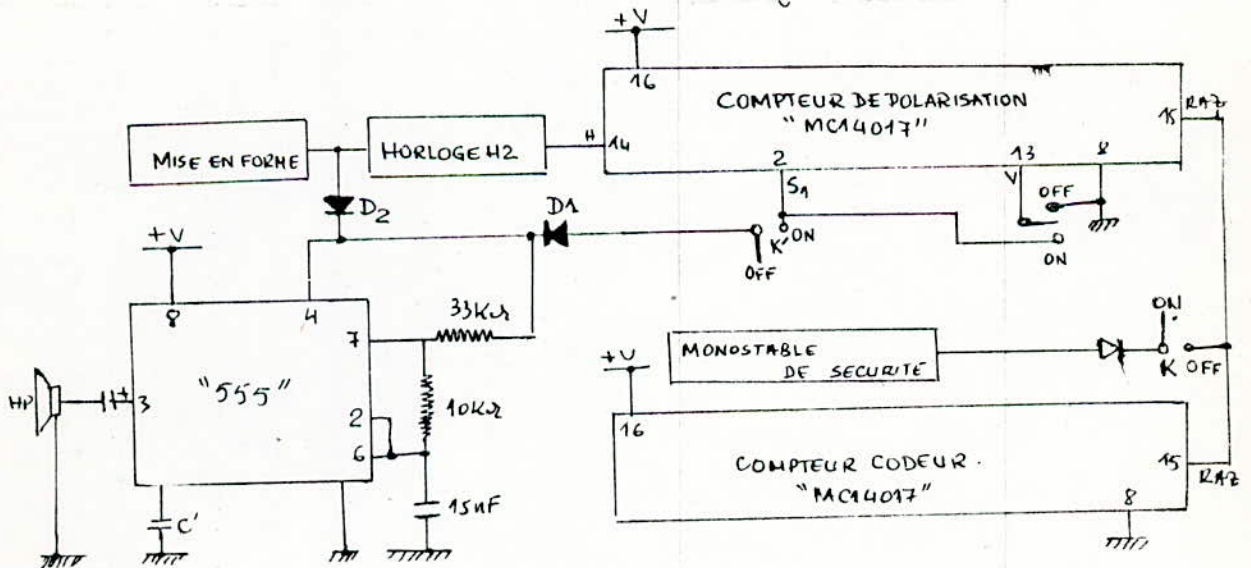 +V
16
COMPTEUR DE POLARISATION
"MC14017"
15
RAZ
MISE EN FORME
HORLOGE H2
H
14
2
S1
13
V
8
D2
D1
OFF
K'
ON
OFF
ON
+V
8
4
33KΩ
7
"555"
HP
+
3
10KΩ
2
6
15nF
C'
MONOSTABLE
DE SECURITÉ
ON
K
OFF
+V
16
COMPTEUR CODEUR.
"MC14017"
15
RAZ
8